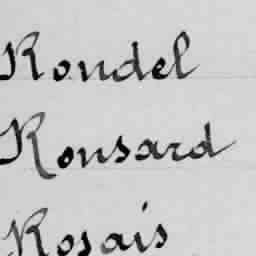 Rondel
Ronsard
Rosais